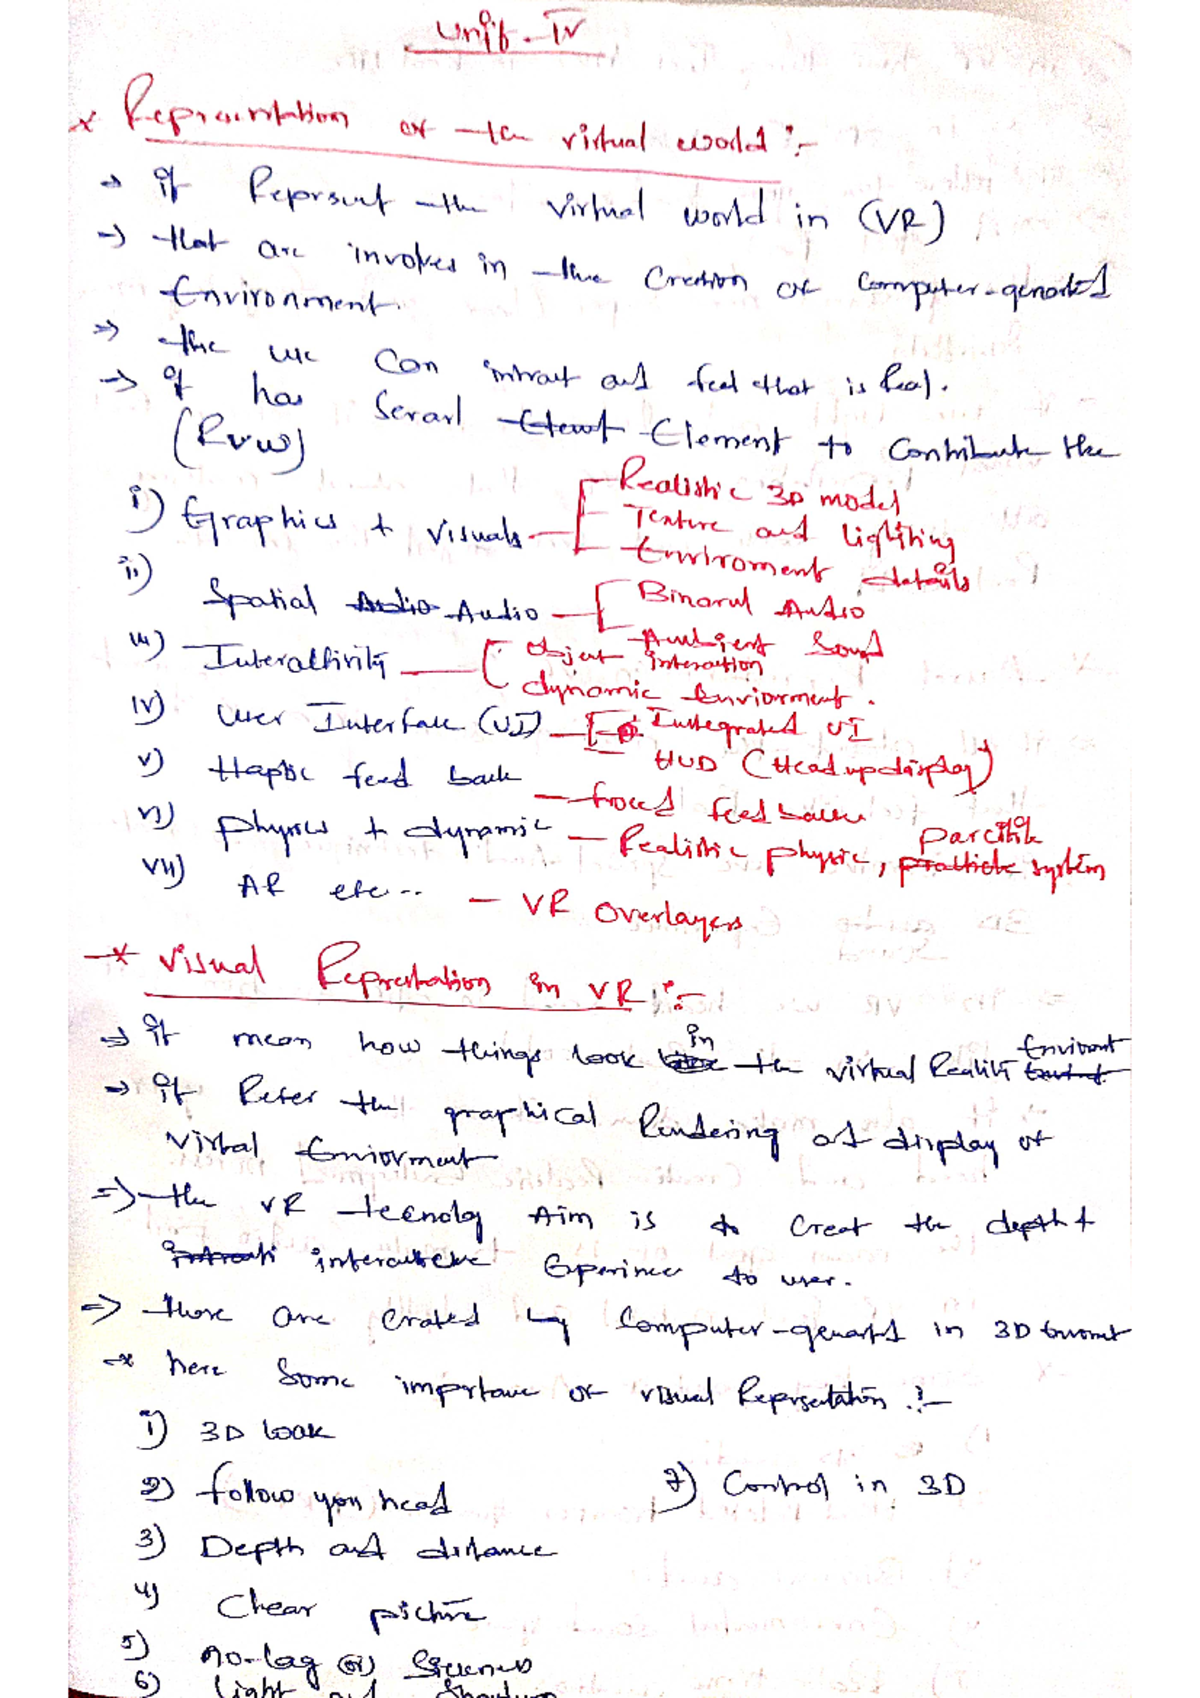 Unit-IV
* Reprsentation of the virtual world :-
→ it Reprsent the virtual world in (VR)
→ that are invokes in the Creation of Computer-genarted
Environment.
⇒ the we Can intract and feel that is Real.
→ it has Serarl Element to Contribute the
(RVW)
i) Graphics + visuals - Realistic 3D model
Texture and lighting
Enviroment details
ii) Spatial Audio - Binarul Audio
Ambient Sound
iii) Interactivity - Object interaction
dynamic Enviorment.
iv) User Interface (UI) - Integrated UI
HUD (Head up display)
v) Haptic feed back - forced feedback
vi) physics + dynamic - Realistic physic, parcitik system
vii) AR etc.. - VR Overlayers
* Visual Reprsetation in VR :-
→ it mean how things look in the virtual Realiti
→ it Refer the graphical Rendering and display of
Virtual Enviorment
⇒ the VR Aim is to Creat the depth +
interactive Experince to user.
⇒ those are Crated by Computer-genarted in 3D
* here Some importance of visual Reprsetation :-
1) 3D look
2) follow you head
7) Control in 3D
3) Depth and distance
4) Clear picture
5) no-lag (or)
6) Light and